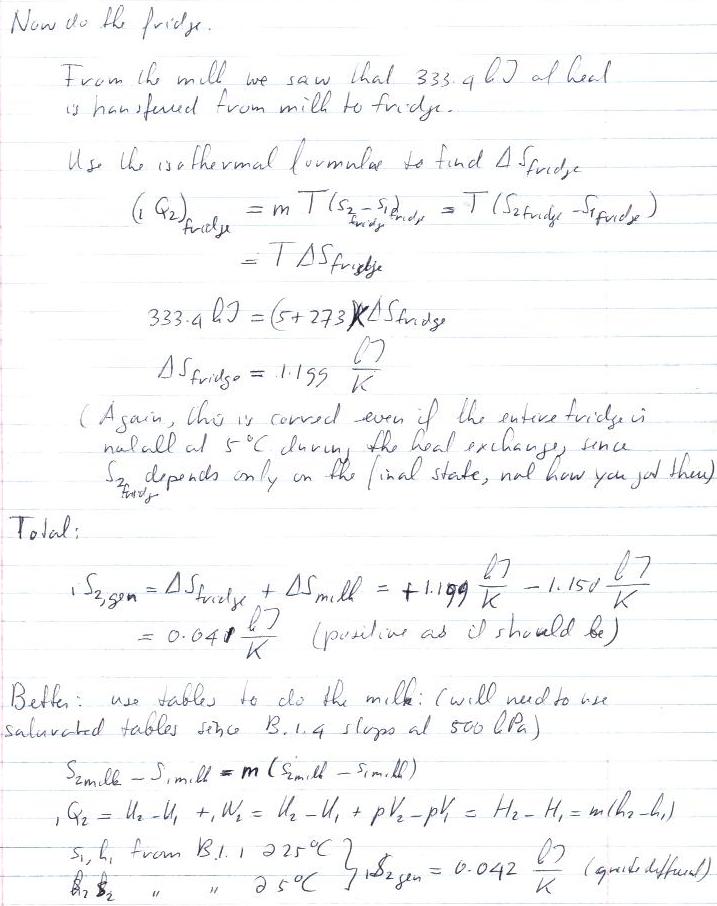 Now do the fridge.
From the milk we saw that 333.4 kJ of heat
is transferred from milk to fridge.
Use the isothermal formulae to find ΔS fridge
(₁Q₂) fridge = m T (s₂ - s₁) fridge = T (S₂ fridge - S₁ fridge)
= T ΔS fridge
333.4 kJ = (5 + 273) K ΔS fridge
ΔS fridge = 1.199 kJ/K
(Again, this is correct even if the entire fridge is
not all at 5°C during the heat exchange, since
S₂ fridge depends only on the final state, not how you got there)
Total:
₁S₂,gen = ΔS fridge + ΔS milk = +1.199 kJ/K - 1.158 kJ/K
= 0.041 kJ/K (positive as it should be)
Better: use tables to do the milk: (will need to use
saturated tables since B.1.4 stops at 500 kPa)
S₂ milk - S₁ milk = m (s₂ milk - s₁ milk)
₁Q₂ = U₂ - U₁ + ₁W₂ = U₂ - U₁ + pV₂ - pV₁ = H₂ - H₁ = m(h₂ - h₁)
s₁, h₁ from B.1.1 @ 25°C
h₂ s₂ " " @ 5°C } ₁S₂ gen = 0.042 kJ/K (quite different)